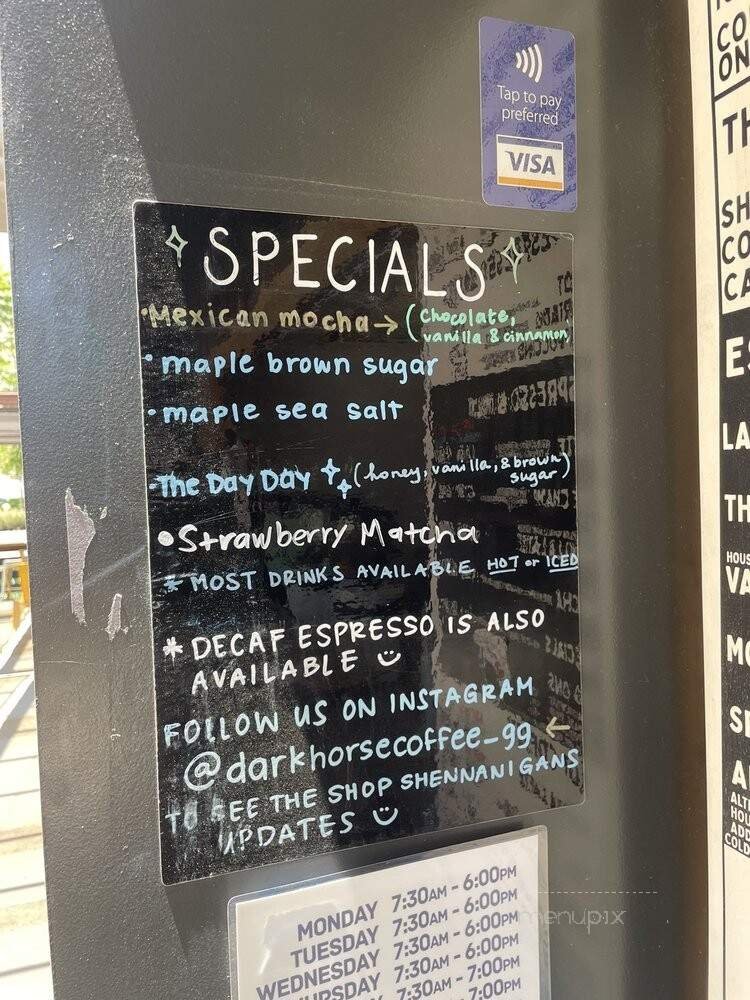 Tap to pay
preferred
VISA
SPECIALS
·Mexican mocha→ (chocolate,
vanilla & cinnamon
·maple brown sugar
·maple sea salt
·The Day Day (honey, vanilla, & brown
sugar)
•Strawberry Matcha
* MOST DRINKS AVAILABLE HOT or ICED
* DECAF ESPRESSO IS ALSO
AVAILABLE
FOLLOW US ON INSTAGRAM
@darkhorsecoffee_gg ←
TO SEE THE SHOP SHENNANIGANS
UPDATES
MONDAY 7:30AM - 6:00PM
TUESDAY 7:30AM - 6:00PM
WEDNESDAY 7:30AM - 6:00PM
7:30AM - 6:00PM
7:30AM - 7:00PM
7:00PM
CO
ON
TH
SH
CO
CA
ES
LA
TH
HOUS
VA
MO
ALL
HOU
ADD
COLD
menupix